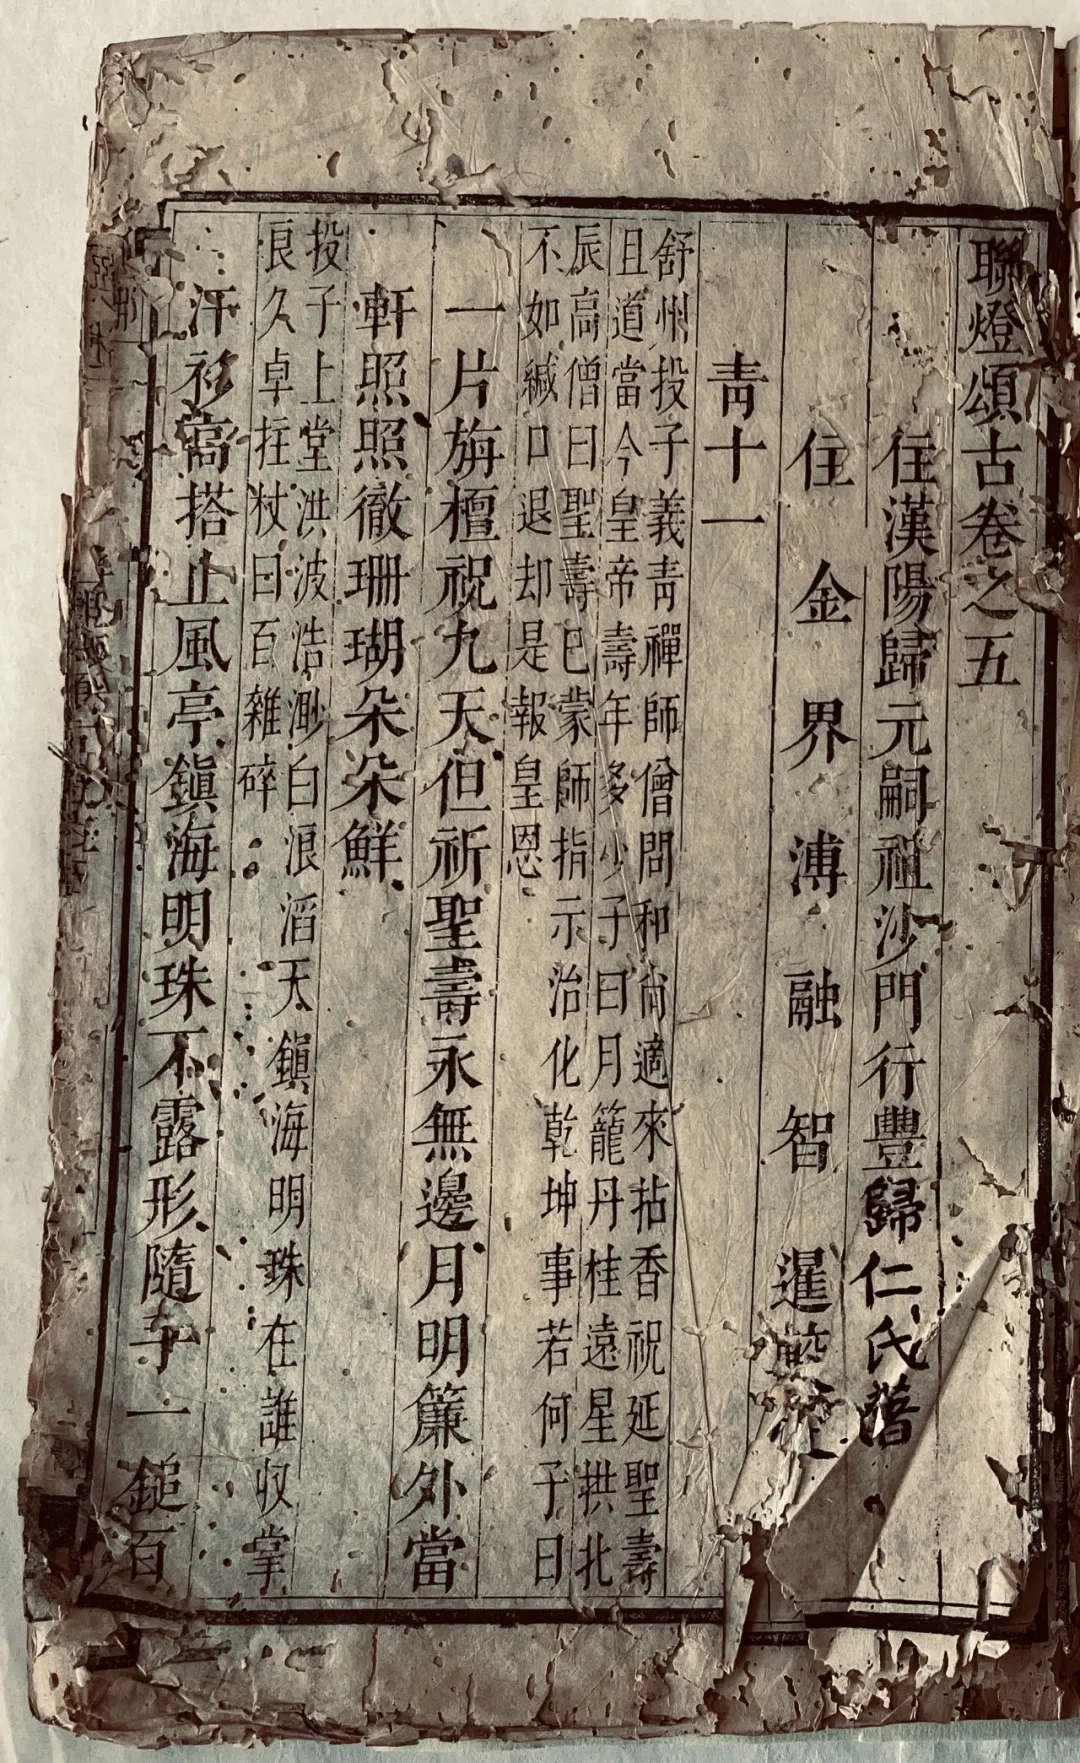 聯燈頌古卷之五
住漢陽歸元嗣祖沙門行豐歸仁氏
住金界溥融智暹
青十一
舒州投子義青禪師僧問和尚適來拈香祝延聖壽
且道當今皇帝壽年多少子曰月籠丹桂遠星拱北
辰高僧曰聖壽已蒙師指示治化乾坤事若何子曰
不如緘口退却是報皇恩
一片旃檀祝九天但祈聖壽永無邊月明簾外當
軒照照徹珊瑚朵朵鮮
投子上堂洪波浩渺白浪滔天鎮海明珠在誰收掌
良久卓拄杖曰百雜碎
汗衫高搭止風亭鎮海明珠不露形隨手一鎚百